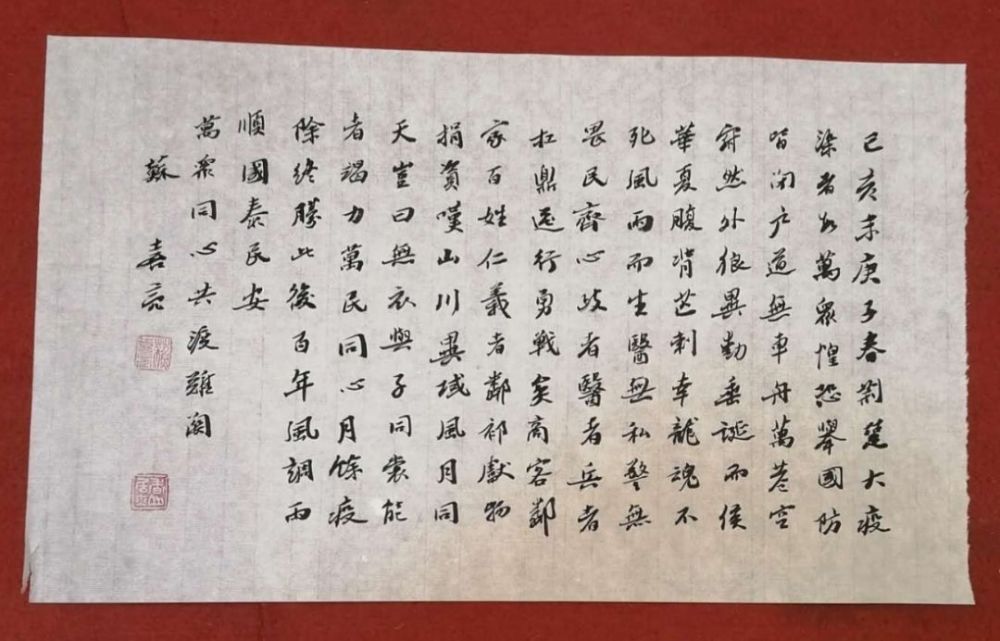 己亥末庚子春荆楚大疫
染者数萬眾惶恐舉國防
皆闭户道無車舟萬巷空
寂然外狼異動垂誕而候
華夏腹背芒刺幸龍魂不
死風雨而生醫無私警無
畏民齊心政者醫者兵者
扛鼎逆行勇戰矣商客鄰
家百姓仁義者鄰邦獻物
捐資嘆山川異域風月同
天豈曰無衣與子同裳能
者竭力萬民同心月餘疫
除終勝此後百年風調雨
順國泰民安
萬眾同心共渡難關
蘇喜亮